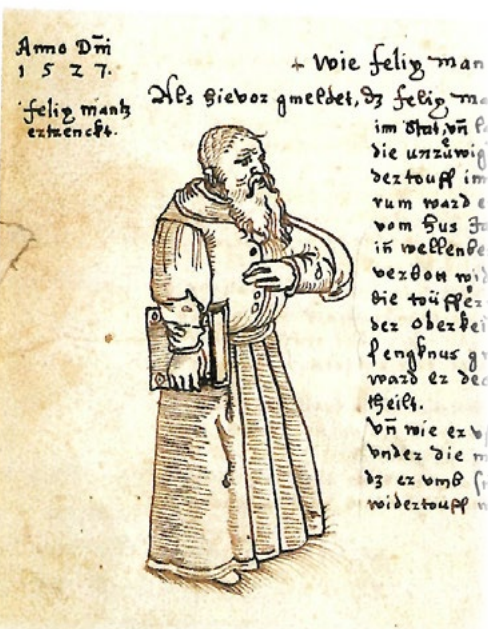 Anno Dm̄i
1 5 2 7.
felix mantz
ertrenckt.
+ Wie felix man
Als hievor gmeldet, dz felix ma
im Stat, vn̄
die
dertouff im
rum ward e
vom Hus
in̄ wellenbe
verbott wid
die töüffer
der Oberkei
fengknus g
ward er dec
theilt.
Vn̄ wie er v
vnder die m
dz er vmb
widertouff